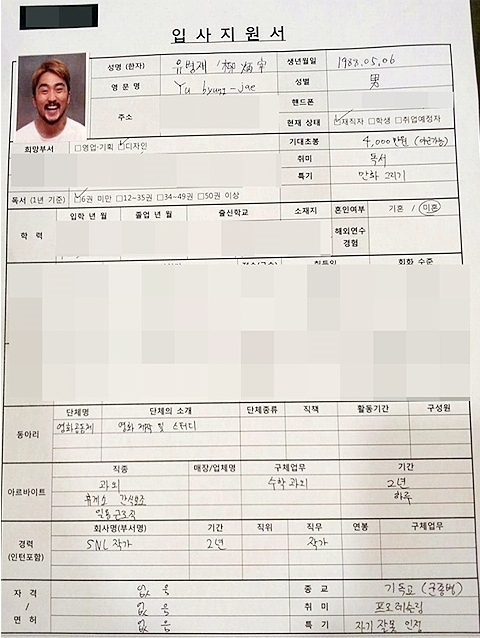 입사지원서
성명 (한자) 유병재 생년월일 1988.05.06
영문명 Yu byung-jae 성별 男
주소 핸드폰
현재 상태 ☑재직자 □학생 □취업예정자
희망부서 □영업·기획 ☑디자인 기대초봉 4,000만원
취미 독서
특기 만화 그리기
독서 (1년 기준) ☑6권 미만 □12~35권 □34~49권 □50권 이상
학력 입학 년 월 졸업 년 월 출신학교 소재지 혼인여부 기혼 / 미혼
해외연수 경험
회화 수준
동아리 단체명 단체의 소개 단체종류 직책 활동기간 구성원
영화공동체 영화 제작 및 스터디
아르바이트 직종 매장/업체명 구체업무 기간
과외 수학 과외 2년
휴게소 간식보조 하루
일용근로직
경력 (인턴포함) 회사명(부서명) 기간 직위 직무 연봉 구체업무
SNL 작가 2년 작가
자격 / 면허 없음 종교 기독교 (군종병)
없음 취미 프로레슬링
없음 특기 자기 잘못 인정